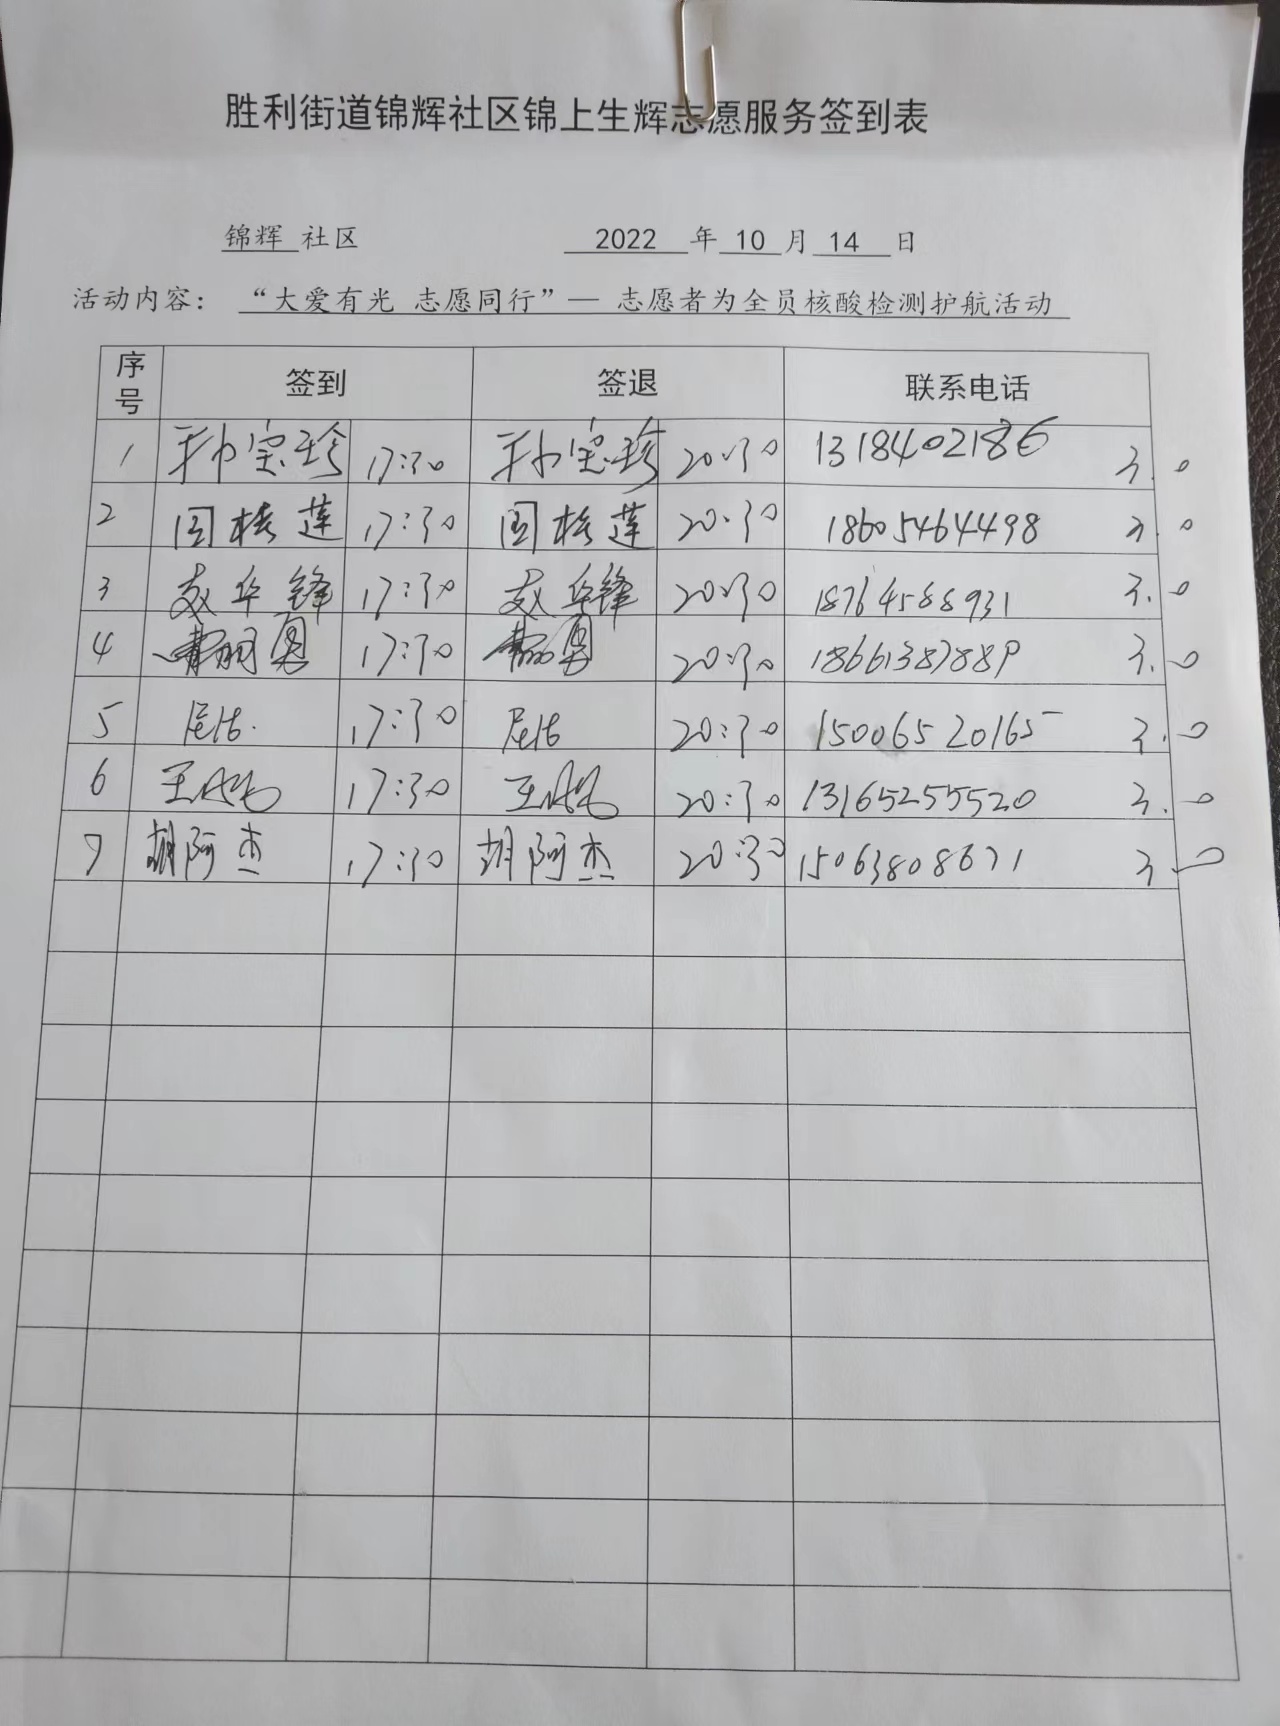 胜利街道锦辉社区锦上生辉志愿服务签到表
锦辉 社区 2022 年 10 月 14 日
活动内容： “大爱有光 志愿同行”— 志愿者为全员核酸检测护航活动
序号 签到 签退 联系电话
1 孙宝珍 17:30 孙宝珍 20:30 1318402186 3.0
2 桂莲 17:30 桂莲 20:30 18605464498 3.0
3 赵华锋 17:30 赵华锋 20:30 18764588931 3.0
4 17:30 20:30 18661387889 3.0
5 17:30 20:30 15006520165 3.0
6 王 17:30 王 20:30 13165255520 3.0
7 胡阿杰 17:30 胡阿杰 20:30 15063808671 3.0